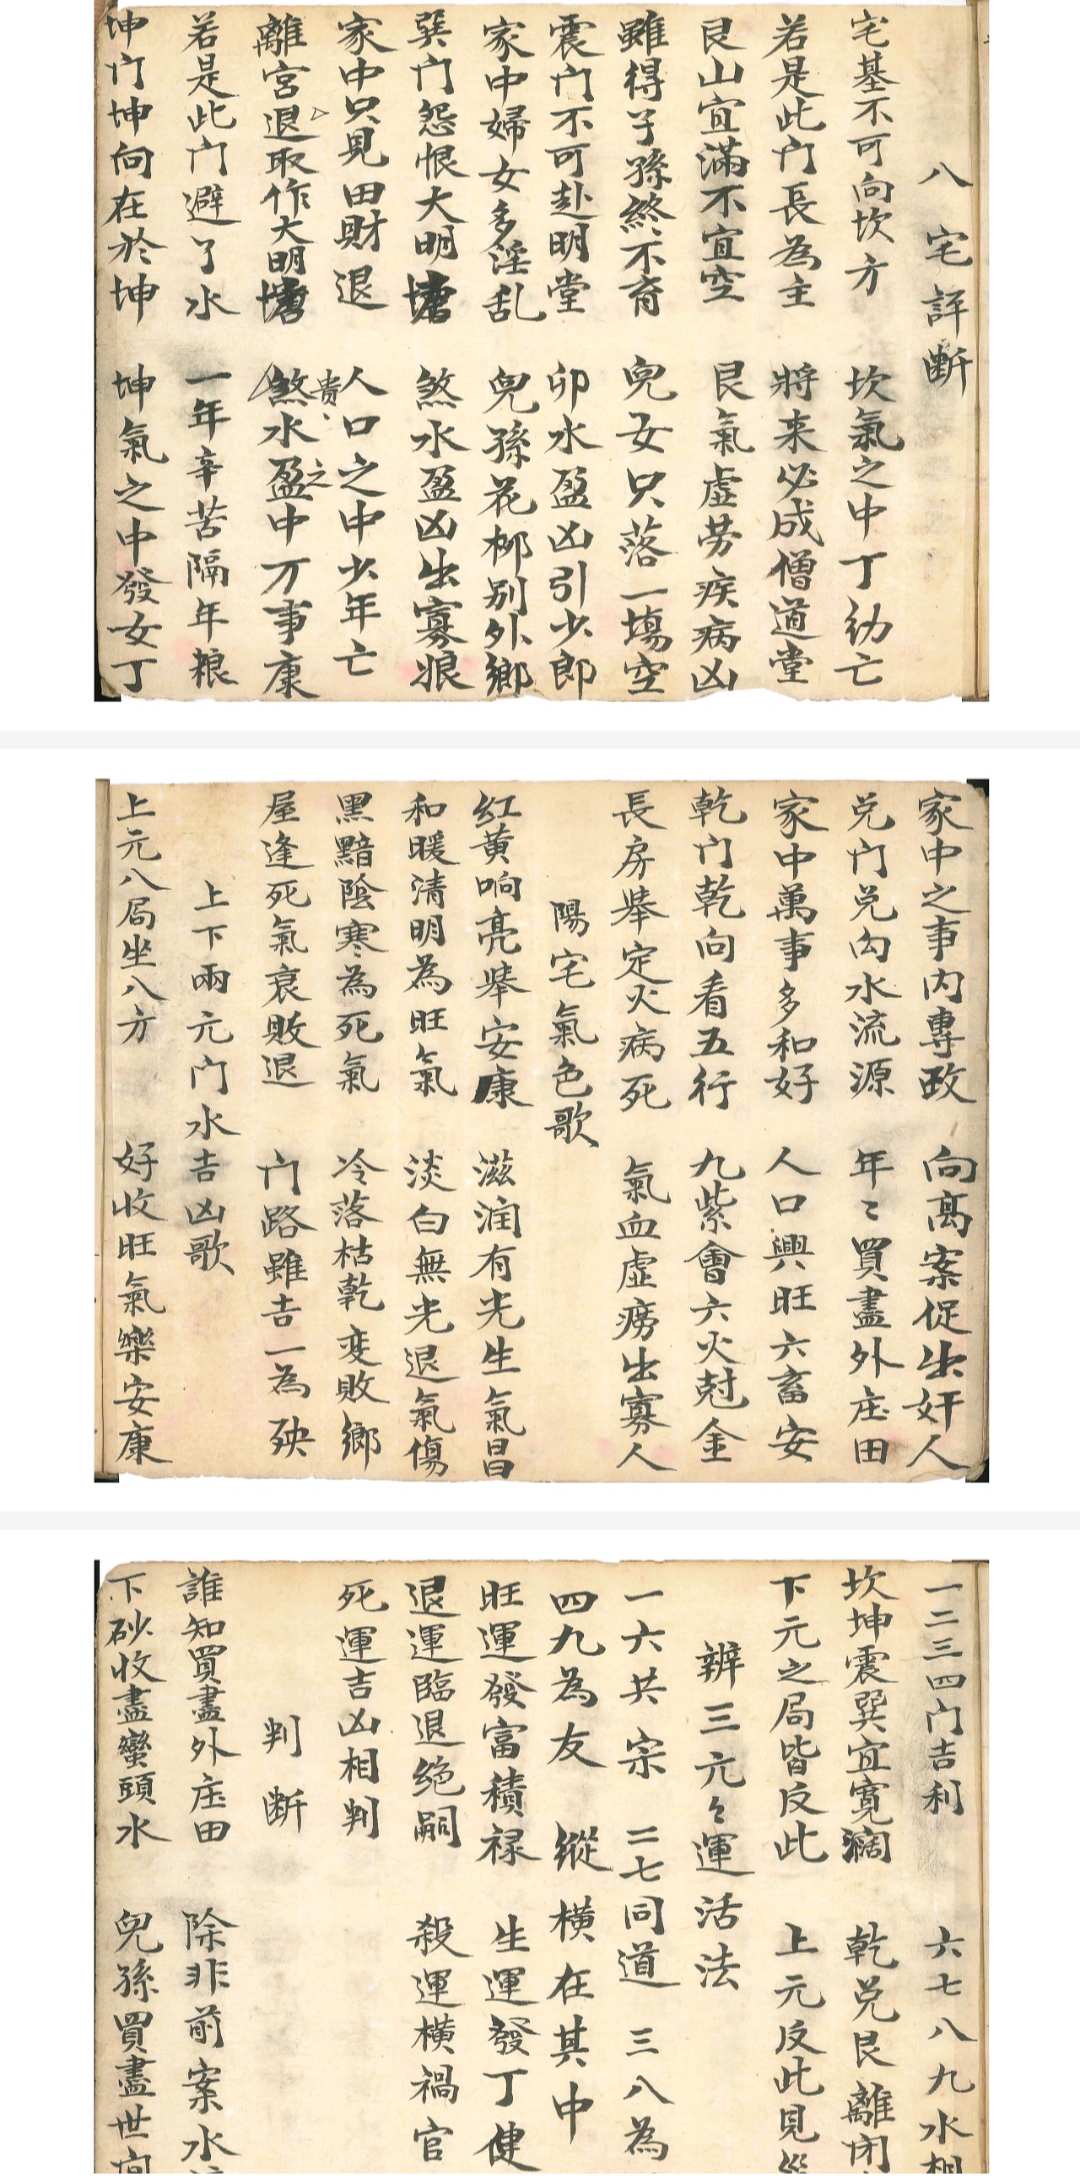 八宅評断
宅基不可向坎方　坎氣之中丁幼亡
若是此门長為主　將来必成僧道堂
艮山宜滿不宜空　艮氣虛劳疾病凶
雖得子孫終不育　兒女只落一塲空
震门不可赴明堂　卯水盈凶引少郎
家中婦女多淫乱　兒孫花柳别外鄉
巽门怨恨大明塘　煞水盈凶出寡娘
家中只見田財退　人口之中少年亡
離宮退取作大明塘　煞水盈中万事康
貴之
若是此门避了水　一年辛苦隔年粮
坤门坤向在於坤　坤氣之中發女丁
家中之事内專政　向高案促出奸人
兑门兑向水流源　年〻買盡外庄田
家中萬事多和好　人口興旺六畜安
乾门乾向看五行　九紫會六火尅金
長房犖定火病死　氣血虛癆出寡人
陽宅氣色歌
红黄响亮犖安康　滋润有光生氣昌
和暖清明為旺氣　淡白無光退氣傷
黑黯陰寒為死氣　冷落枯乾变敗鄉
屋逢死氣衰敗退　门路雖吉一為殃
上下兩元门水吉凶歌
上元八局坐八方　好收旺氣樂安康
一二三四门吉利　六七八九水相
坎坤震巽宜寬濶　乾兑艮離闭
下元之局皆反此　上元反此見
辨三元〻運活法
一六共宗　二七同道　三八為
四九為友　縱橫在其中
旺運發富積禄　生運發丁健
退運臨退绝嗣　殺運橫禍官
死運吉凶相判
判断
誰知買盡外庄田　除非前案水
下砂收盡蠻頭水　兒孫買盡世间